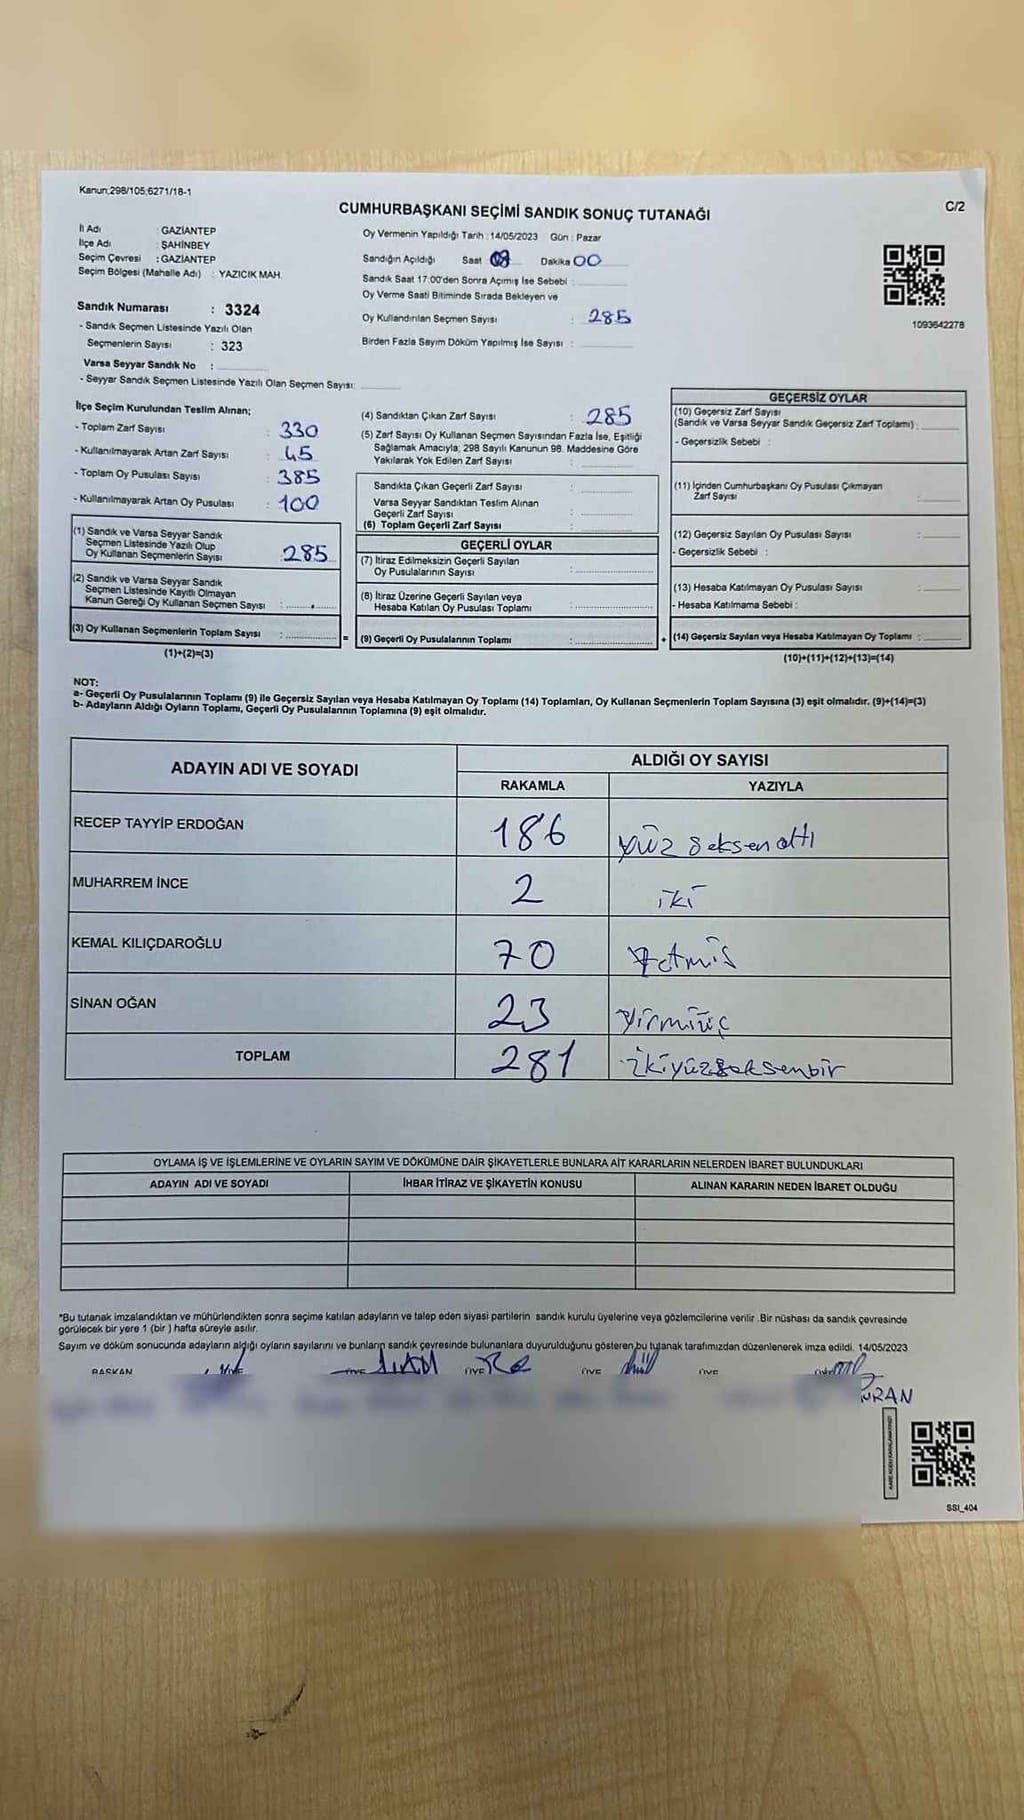 Kanun;298/105,6271/18-1
CUMHURBAŞKANI SEÇİMİ SANDIK SONUÇ TUTANAĞI
C/2
İl Adı : GAZİANTEP
İlçe Adı : ŞAHİNBEY
Seçim Çevresi : GAZİANTEP
Seçim Bölgesi (Mahalle Adı) : YAZICIK MAH.
Sandık Numarası : 3324
- Sandık Seçmen Listesinde Yazılı Olan
Seçmenlerin Sayısı : 323
Varsa Seyyar Sandık No :
- Seyyar Sandık Seçmen Listesinde Yazılı Olan Seçmen Sayısı:
Oy Vermenin Yapıldığı Tarih : 14/05/2023 Gün : Pazar
Sandığın Açıldığı Saat 08 Dakika 00
Sandık Saat 17:00'den Sonra Açımış İse Sebebi :
Oy Verme Saati Bitiminde Sırada Bekleyen ve
Oy Kullandırılan Seçmen Sayısı : 285
Birden Fazla Sayım Döküm Yapılmış İse Sayısı :
1093642278
İlçe Seçim Kurulundan Teslim Alınan;
- Toplam Zarf Sayısı : 330
- Kullanılmayarak Artan Zarf Sayısı : 45
- Toplam Oy Pusulası Sayısı : 385
- Kullanılmayarak Artan Oy Pusulası : 100
(1) Sandık ve Varsa Seyyar Sandık
Seçmen Listesinde Yazılı Olup
Oy Kullanan Seçmenlerin Sayısı : 285
(2) Sandık ve Varsa Seyyar Sandık
Seçmen Listesinde Kayıtlı Olmayan
Kanun Gereği Oy Kullanan Seçmen Sayısı :
(3) Oy Kullanan Seçmenlerin Toplam Sayısı : =
(1)+(2)=(3)
(4) Sandıktan Çıkan Zarf Sayısı : 285
(5) Zarf Sayısı Oy Kullanan Seçmen Sayısından Fazla İse, Eşitliği
Sağlamak Amacıyla; 298 Sayılı Kanunun 98. Maddesine Göre
Yakılarak Yok Edilen Zarf Sayısı :
Sandıkta Çıkan Geçerli Zarf Sayısı :
Varsa Seyyar Sandıktan Teslim Alınan
Geçerli Zarf Sayısı :
(6) Toplam Geçerli Zarf Sayısı :
GEÇERLİ OYLAR
(7) İtiraz Edilmeksizin Geçerli Sayılan
Oy Pusulalarının Sayısı :
(8) İtiraz Üzerine Geçerli Sayılan veya
Hesaba Katılan Oy Pusulası Toplamı :
(9) Geçerli Oy Pusulalarının Toplamı : +
GEÇERSİZ OYLAR
(10) Geçersiz Zarf Sayısı
(Sandık ve Varsa Seyyar Sandık Geçersiz Zarf Toplamı) :
- Geçersizlik Sebebi :
(11) İçinden Cumhurbaşkanı Oy Pusulası Çıkmayan
Zarf Sayısı :
(12) Geçersiz Sayılan Oy Pusulası Sayısı :
- Geçersizlik Sebebi :
(13) Hesaba Katılmayan Oy Pusulası Sayısı :
- Hesaba Katılmama Sebebi :
(14) Geçersiz Sayılan veya Hesaba Katılmayan Oy Toplamı :
(10)+(11)+(12)+(13)=(14)
NOT:
a- Geçerli Oy Pusulalarının Toplamı (9) ile Geçersiz Sayılan veya Hesaba Katılmayan Oy Toplamı (14) Toplamları, Oy Kullanan Seçmenlerin Toplam Sayısına (3) eşit olmalıdır. (9)+(14)=(3)
b- Adayların Aldığı Oyların Toplamı, Geçerli Oy Pusulalarının Toplamına (9) eşit olmalıdır.
ADAYIN ADI VE SOYADI
ALDIĞI OY SAYISI
RAKAMLA YAZIYLA
RECEP TAYYİP ERDOĞAN 186 yüz seksen altı
MUHARREM İNCE 2 iki
KEMAL KILIÇDAROĞLU 70 Yetmiş
SİNAN OĞAN 23 yirmiüç
TOPLAM 281 ikiyüzseksenbir
OYLAMA İŞ VE İŞLEMLERİNE VE OYLARIN SAYIM VE DÖKÜMÜNE DAİR ŞİKAYETLERLE BUNLARA AİT KARARLARIN NELERDEN İBARET BULUNDUKLARI
ADAYIN ADI VE SOYADI İHBAR İTİRAZ VE ŞİKAYETİN KONUSU ALINAN KARARIN NEDEN İBARET OLDUĞU
*Bu tutanak imzalandıktan ve mühürlendikten sonra seçime katılan adayların ve talep eden siyasi partilerin sandık kurulu üyelerine veya gözlemcilerine verilir .Bir nüshası da sandık çevresinde
görülecek bir yere 1 (bir ) hafta süreyle asılır.
Sayım ve döküm sonucunda adayların aldığı oyların sayılarını ve bunların sandık çevresinde bulunanlara duyurulduğunu gösteren bu tutanak tarafımızdan düzenlenerek imza edildi. 14/05/2023
BAŞKAN ÜYE ÜYE ÜYE ÜYE
SSI_404